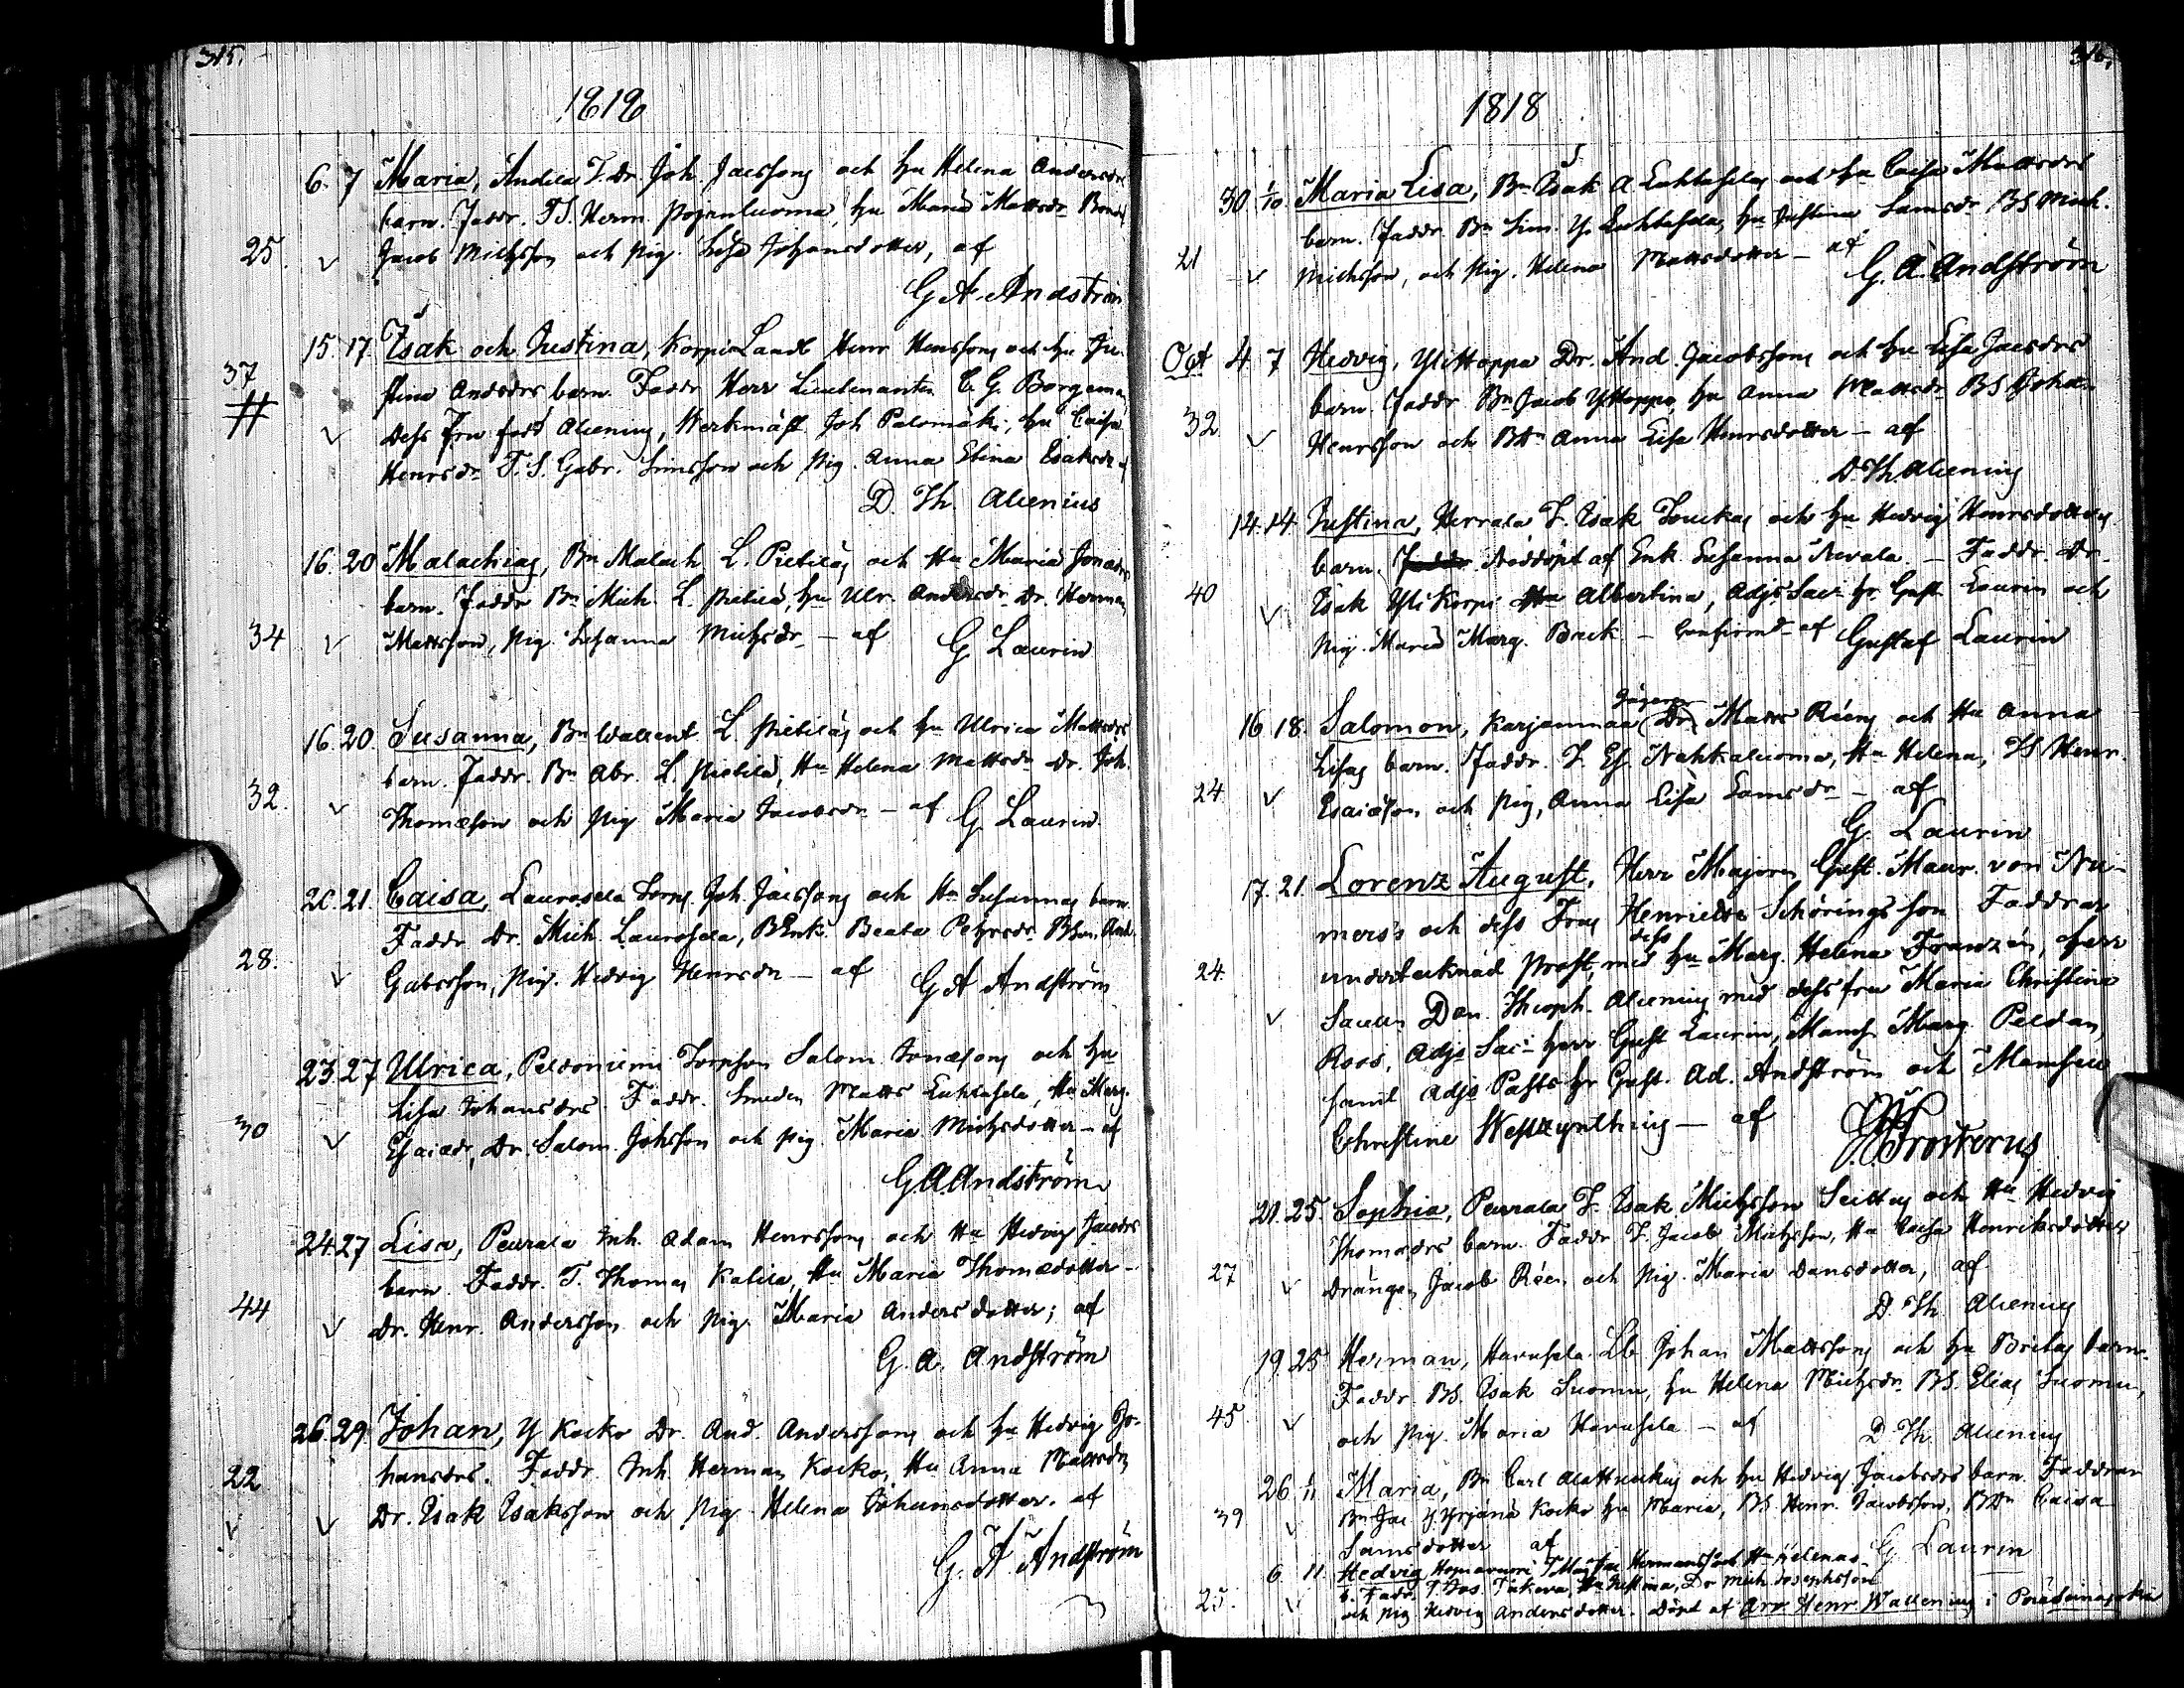 315.
1818
6. 7 Maria, Andila T. Dr. Joh. Jacssons och Hu Helena Andersdrs
barn. Faddr. TS. Herm. Pojenluoma, Hu Maria Mattsdr Bonds
25. v Jacob Michsson och Pig. Lisa Johansdotter, af
G A Andström
15. 17. Isak och Justina, Korpi Landb Henr Henrssons och Hu Ju-
37 stina Andsdrs barn. Faddr. Herr Lieutenanten C. G. Borgeman
# v Dess Fru född Alcenius, Werkmäst. Joh Palomäki, Hu Caisa
Henrsdr T. S. Gabr. Simsson och Pig. Anna Stina Isaksdr af
D. Th. Alcenius
16. 20 Malachias, Bn Malach. L. Pietiläs och Hu Maria Jonædrs
barn. Faddr Bn Mich. L. Pietilä, Hu Ulr. Andersdr Dr. Herman
34 v Mattsson, Pig. Susanna Michsdr – af G Laurin
16. 20. Susanna, Bn Wallent. L. Pietiläs och Hu Ulrica Mattsdrs
barn. Faddr. Bn Abr. L. Pietilä, Hu Helena Mattsdr Dr. Joh.
32. v Thomæson och Pig Maria Jacobsdr – af G Laurin.
20. 21. Caisa, Laurosela Torp. Joh. Jacssons och Hu Susannas barn.
Faddr Dr. Mich. Laurosela, BEnk. Beata Petersdr BSon And.
28. v Gabrsson, Pig. Hedvig Henrsdr – af G A Andström
23. 27 Ulrica, Peldoniemi Torpson Salom. Jonæsons och Hu
Lisa Johansdrs. Faddr. Smeden Matts Luhtasela, Hu Marg.
30 v Esaiædr, Dr. Salom. Johsson och Pig Maria Michsdotter – af
G A Andström
24. 27 Lisa, Peurala Inh. Adam Henrssons och Hu Hedvig Jacsdrs
barn Faddr. T. Thomas Katila, Hu Maria Thomædotter –
44 v Dr. Henr. Andersson och Pig. Maria Andersdotter; af
G. A. Andström
26. 29. Johan, Y Kocko Dr. And. Anderssons och Hu Hedvig Jo-
hansdrs. Faddr. Inh. Herman Kocko, Hu Anna Mattsdr
22 v v Dr. Isak Isaksson och Pig Helena Johansdotter. af
G. A Andström
316.
1818
30. 1/10 Maria Lisa, Bn Isak A Luhtaselas och Hu Caisa Mattsdrs
barn. Faddr. Bn Sim. Y. Luhtasela, Hu Justina Samsdr BS Mich.
21 v Michsson, och Pig. Helena Mattsdotter – af
G. A. Andström
Oct 4. 7 Hedvig, Ylittoppa Dr. And. Jacobssons och Hu Lisa Jacsdrs
barn. Faddr Bn Jacob Yttoppa, Hu Anna Mattsdr BS. Johan
32. v Henrsson och BDr Anna Lisa Henrsdotter – af
D. Th. Alcenius
14. 14. Justina, Herrala T. Isak Louckas och Hu Hedvig Henrsdotters
barn. Faddr. Nöddöpt af Enk. Susanna Nevala – Faddr. Dr.
40 v Isak Yli Korpi Hu Albertina, Adjs Sacr. Hr. Gust Laurin och
Pig. Maria Marg. Back – Confirmd af Gustaf Laurin
16. 18. Salomon, Karjanmaa Jägaren (Dr) Matts Réens och Hu Anna
Lisas barn. Faddr. T. Es. Nahkaluoma, Hu Helena, TS Henr.
24 v Esaiæson och Pig, Anna Lisa Samsdr – af
G. Laurin
17. 21. Lorenz August, Herr Majoren Gust. Maur. von Nu-
mers's och dess Frus Henriette Schöringsson Faddrar
24. undertecknad Prost, med dess Hu Marg. Helena Franzén, Herr
v Sacell. Dan. Theoph. Alcenius med dess fru Maria Christina
Roos, Adjs Sac. Herr Gust Laurin, Mams. Marg. Peldan,
samt Adjs Past Hr Gust. Ad. Andström och Mamsell
Christine Westzynthius – af
Frosterus
21. 25. Sophia, Peurala T. Isak Michsson Seittus och Hu Hedvig
Thomædrs barn. Faddr. T. Jacob Michsson, Hu Caisa Henriksdotter
27 v Drängen Jacob Réen och Pig. Maria Dansdotter, af
D. Th. Alcenius
19. 25 Herman, Havusela Lb Johan Mattssons och Hu Britas barn.
Faddr. BS. Isak Suomu, Hu Helena Michsdr. BS. Elias Suomu,
45. v och Pig. Maria Havusela – af D Th. Alcenius
26. 1/11 Maria, Bn Carl Alattuckus och Hu Hedvig Jacobsdrs barn. Faddrar
39 v Bn Jac Y. Yrjänä Kocko Hu Maria, BS. Henr. Jacobsson, BDr Caisa
Samsdotter af G. Laurin
6. 11 Hedvig Hermanssons och Hu Helenas
b. Fadr. T Jos. Hu Justina, Dr Mich. Josephsson
25. v och Pig Hedvig Andersdotter. Döpt af Arv. Henr Wallenius i